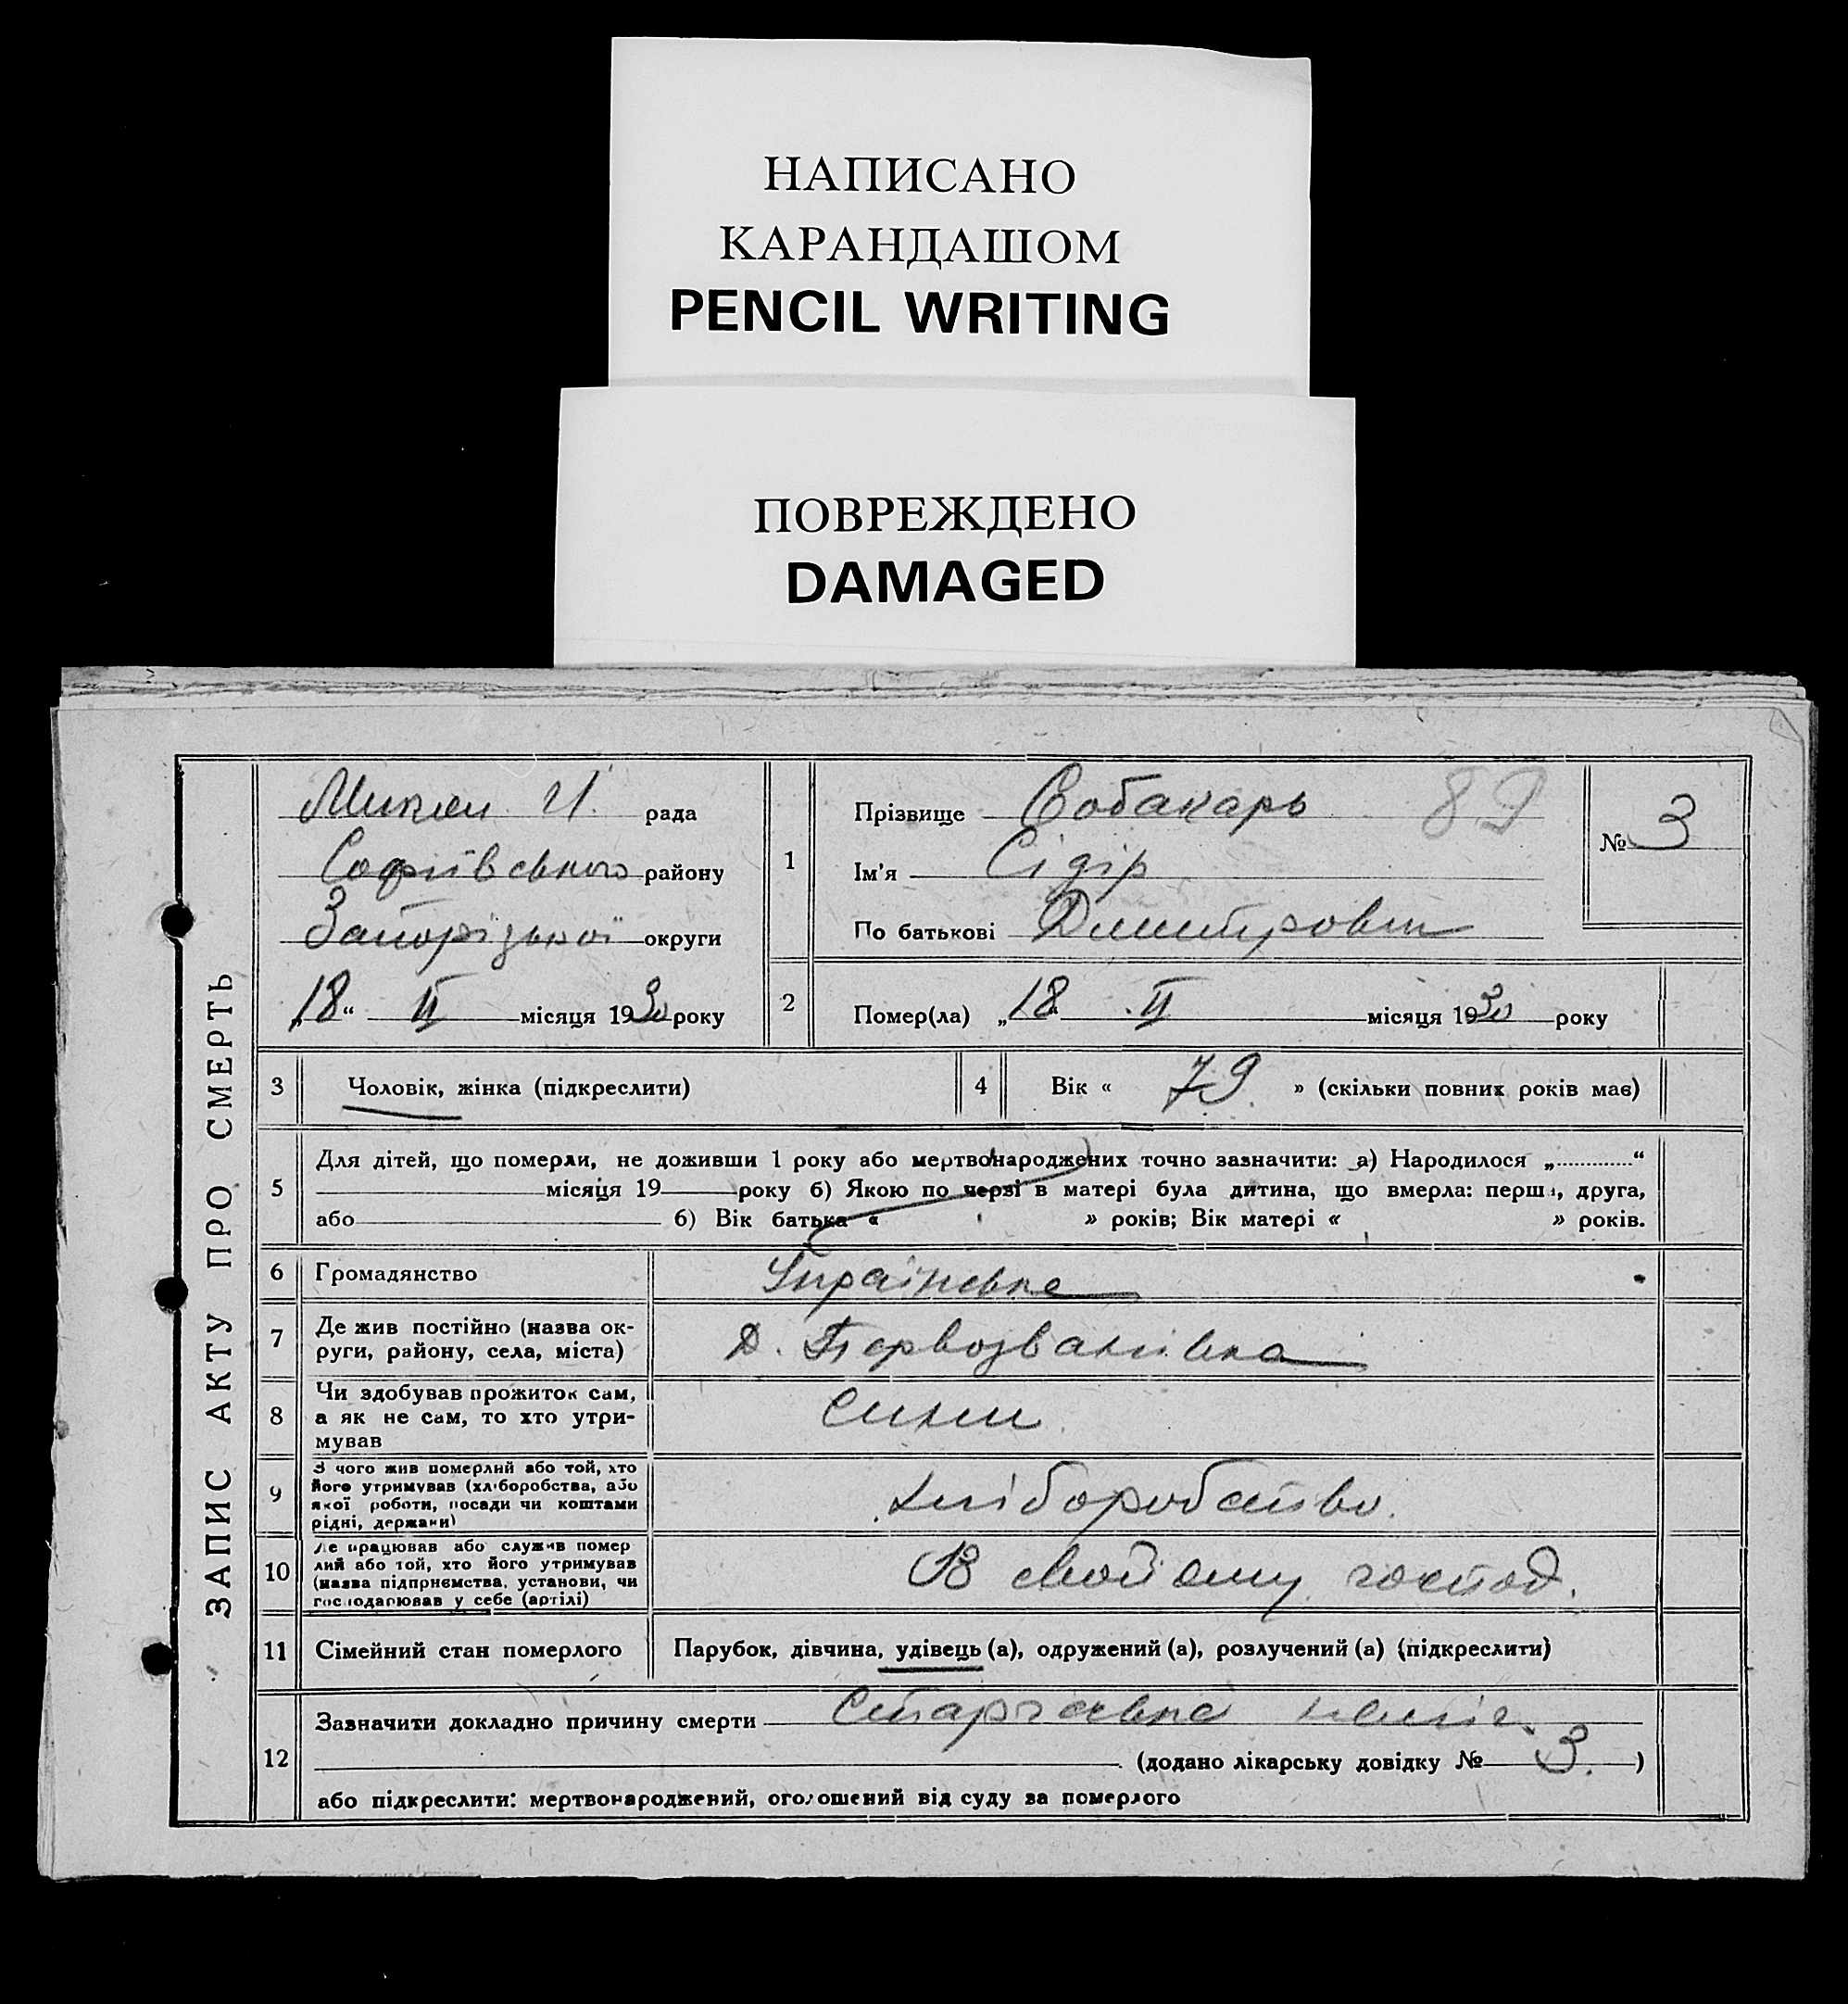 НАПИСАНО
КАРАНДАШОМ
PENCIL WRITING
ПОВРЕЖДЕНО
DAMAGED
ЗАПИС АКТУ ПРО СМЕРТЬ
рада
Софіївського району
Запорізької округи
„18“ II місяця 1930 року
1
Прізвище Собакарь 89
Ім'я Сідір
По батькові Дмитрович
№ 3
2
Помер(ла) „18“ II місяця 1930 року
3 Чоловік, жінка (підкреслити)
4 Вік « 79 » (скільки повних років має)
5
Для дітей, що померли, не доживши 1 року або мертвонароджених точно зазначити: а) Народилося „............“
місяця 19 року б) Якою по черзі в матері була дитина, що вмерла: перша, друга,
або б) Вік батька « » років; Вік матері « » років.
6 Громадянство Українське
7 Де жив постійно (назва ок-
руги, району, села, міста) Д. Первозванівка
8 Чи здобував прожиток сам,
а як не сам, то хто утри-
мував Сини
9 З чого жив померлий або той, хто
його утримував (хліборобства, або
якої роботи, посади чи коштами
рідні, держави) Хліборобство.
10 Де працював або служив помер
лий або той, хто його утримував
(назва підприємства, установи, чи
господарював у себе (артілі) В свойому господ.
11 Сімейний стан померлого Парубок, дівчина, удівець (а), одружений (а), розлучений (а) (підкреслити)
12
Зазначити докладно причину смерти
(додано лікарську довідку № 3. )
або підкреслити: мертвонароджений, оголошений від суду за померлого